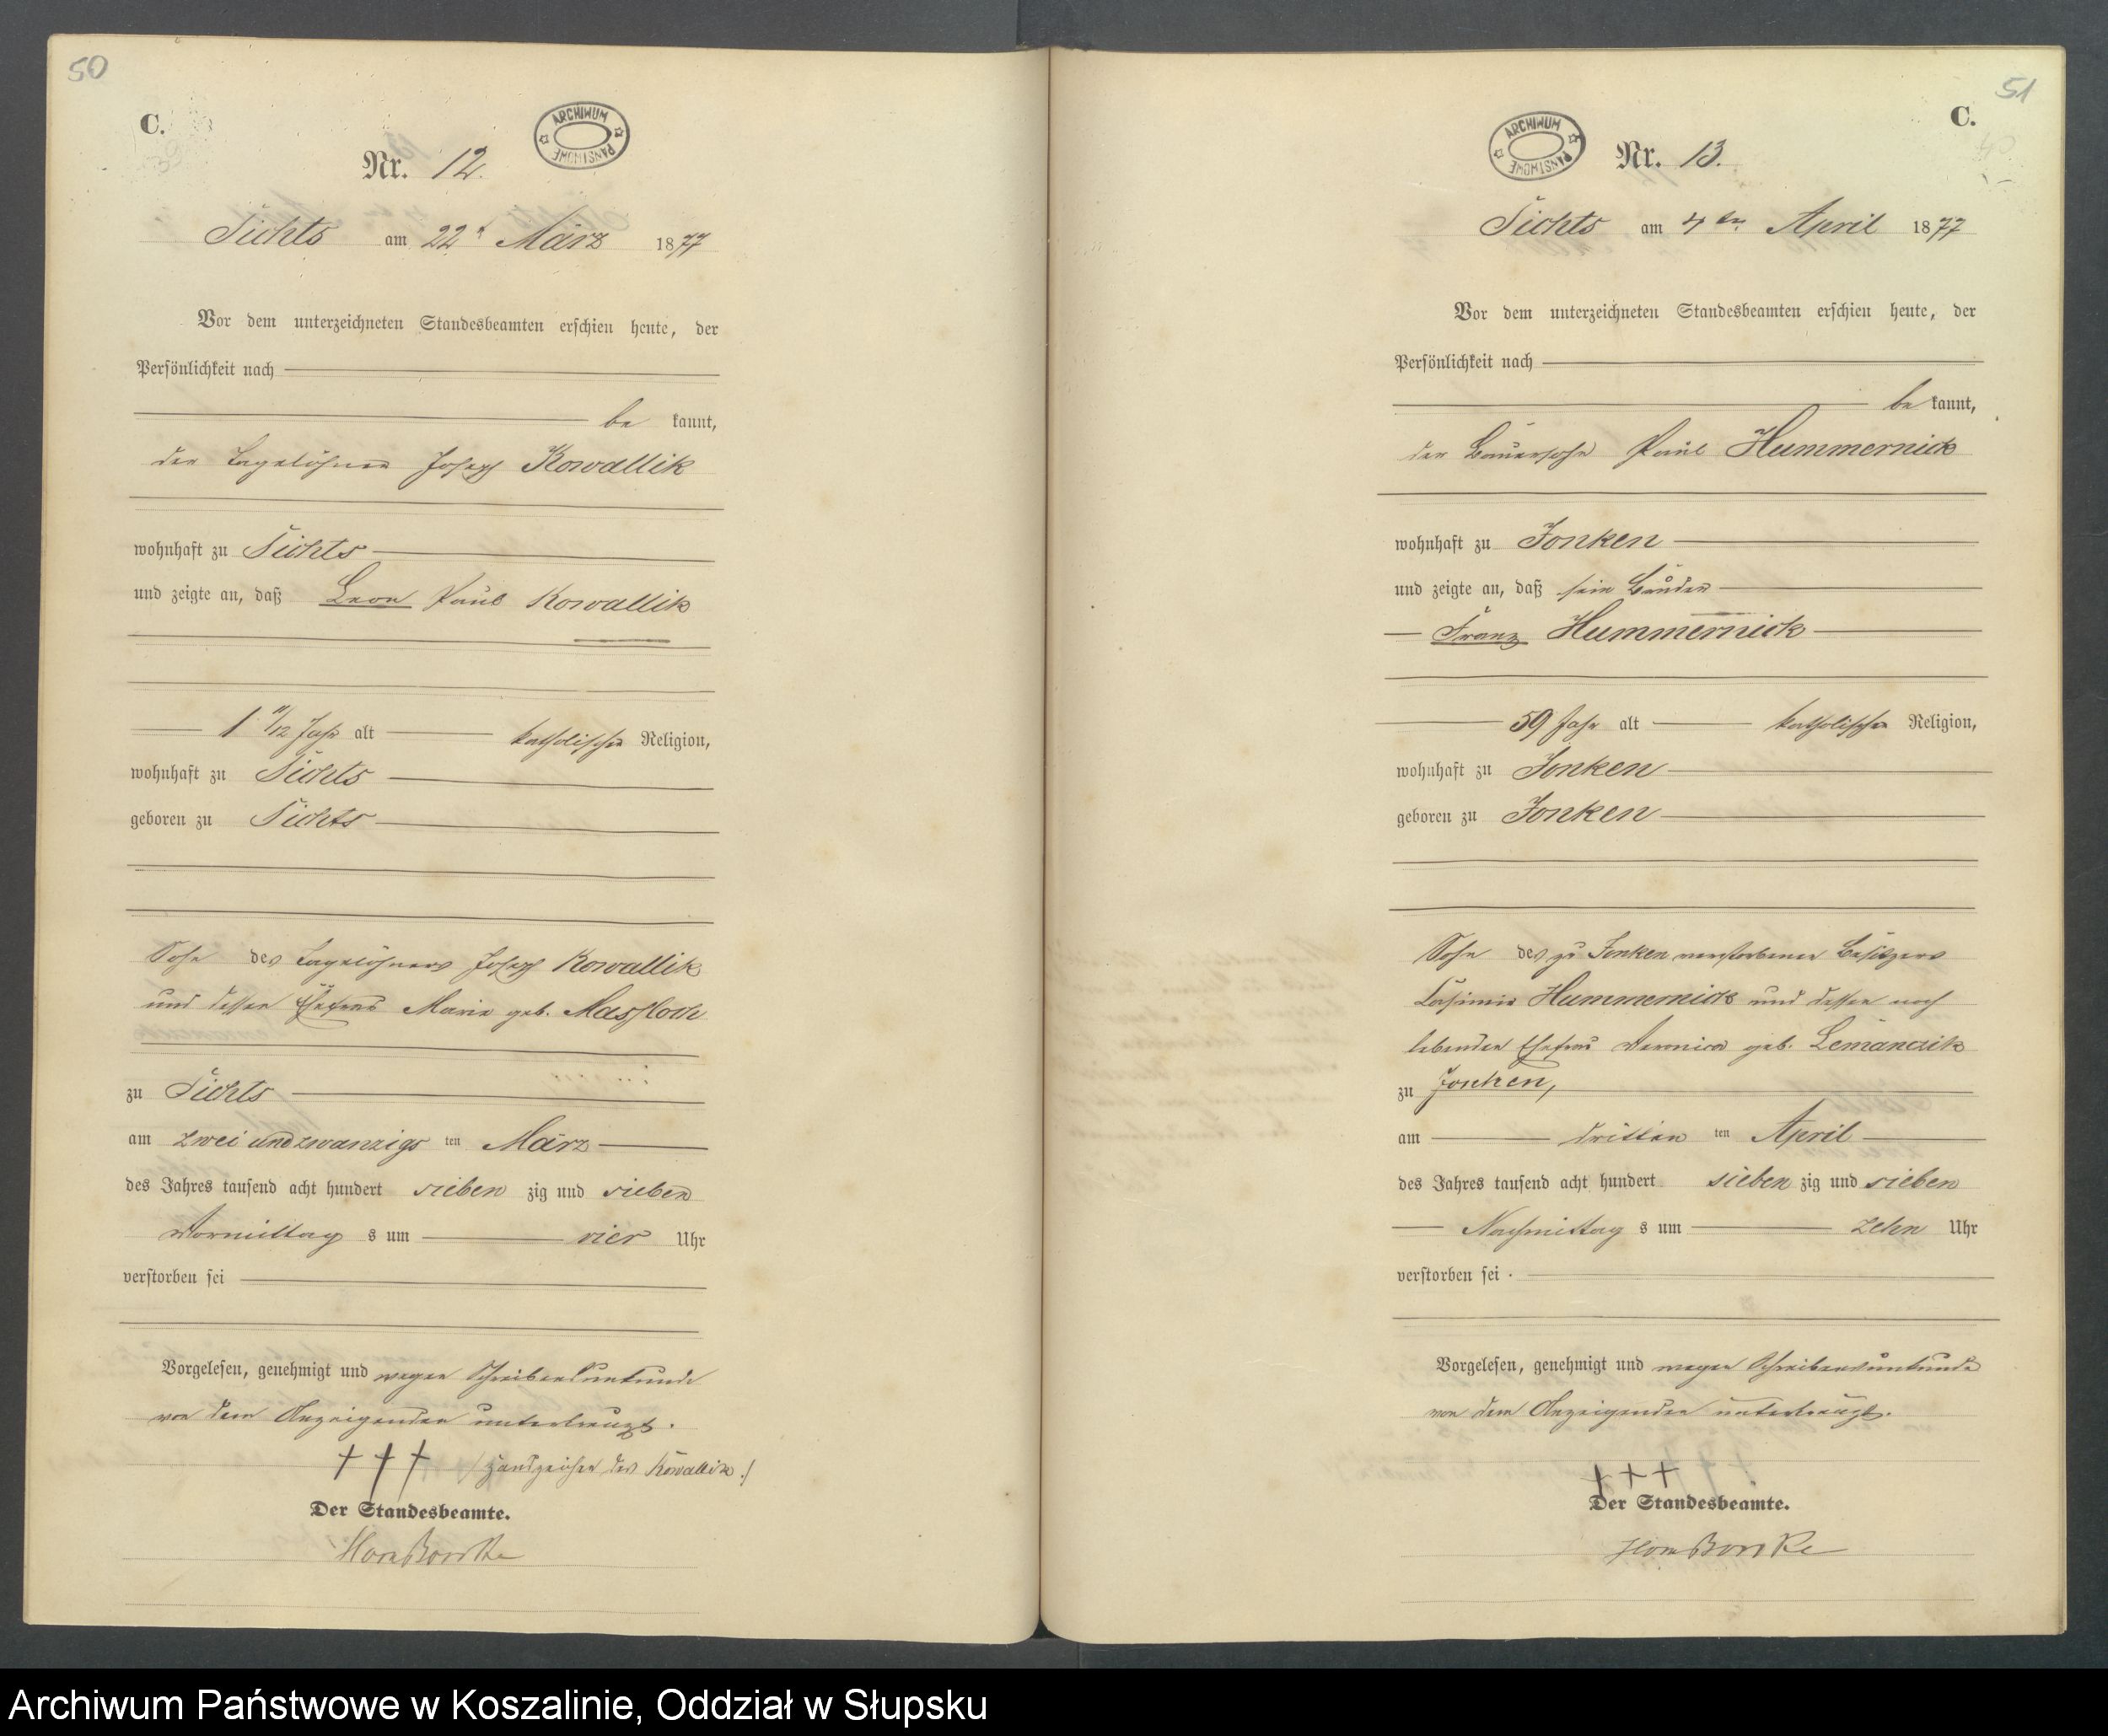 50
C.
ARCHIWUM PAŃSTWOWE
Nr. 12.
am 22t März 1877
Vor dem unterzeichneten Standesbeamten erschien heute, der
Persönlichkeit nach
be kannt,
der Tagelöhner Joseph Kowallik
wohnhaft zu
und zeigte an, daß Leon Paul Kowallik
1 11/12 Jahr alt katholischer Religion,
wohnhaft zu
geboren zu
Sohn des Tagelöhners Joseph Kowallik
und dessen Ehefrau Marie geb.
zu
am zwei und zwanzigs ten März
des Jahres tausend acht hundert sieben zig und sieben
Vormittag s um vier Uhr
verstorben sei
Vorgelesen, genehmigt und wegen Schreibensunkunde
von dem Anzeigenden unterkreuzt.
+++ Handzeichen des Kowallik./
Der Standesbeamte.
51
C.
ARCHIWUM PAŃSTWOWE
Nr. 13.
am 4ten April 1877
Vor dem unterzeichneten Standesbeamten erschien heute, der
Persönlichkeit nach
be kannt,
der Bauersohn Paul Hummernick
wohnhaft zu Jonken
und zeigte an, daß sein Bruder
Franz Hummernick
59 Jahr alt katholischer Religion,
wohnhaft zu Jonken
geboren zu Jonken
Sohn des zu Jonken verstorbenen Besitzers
Casimir Hummernick und dessen noch
lebenden Ehefrau Veronica geb. Lemanczik
zu Jonken,
am dritten ten April
des Jahres tausend acht hundert sieben zig und sieben
Nachmittag s um zehn Uhr
verstorben sei.
Vorgelesen, genehmigt und wegen Schreibensunkunde
von dem Anzeigenden unterkreuzt.
+++
Der Standesbeamte.
Archiwum Państwowe w Koszalinie, Oddział w Słupsku